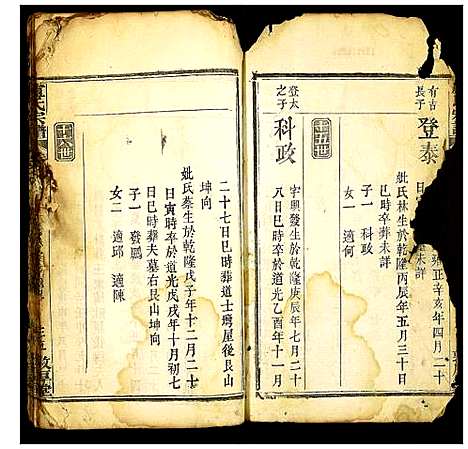 有吉
長子
登泰
雍正辛亥年四月二十
未詳
妣氏林生於乾隆丙辰年五月三十日
巳時卒葬未詳
子一 科政
女一 適何
十五世
登太
之子
科政
字興發生於乾隆庚辰年七月二十
八日巳時卒於道光乙酉年十一月
二十七日巳時葬道士灣屋後艮山
坤向
妣氏蔡生於乾隆戊子年十二月二十
日寅時卒於道光戊戌年十月初七
日巳時葬夫墓右艮山坤向
子一 發鵬
女二 適邱 適陳
十六世
氏宗譜